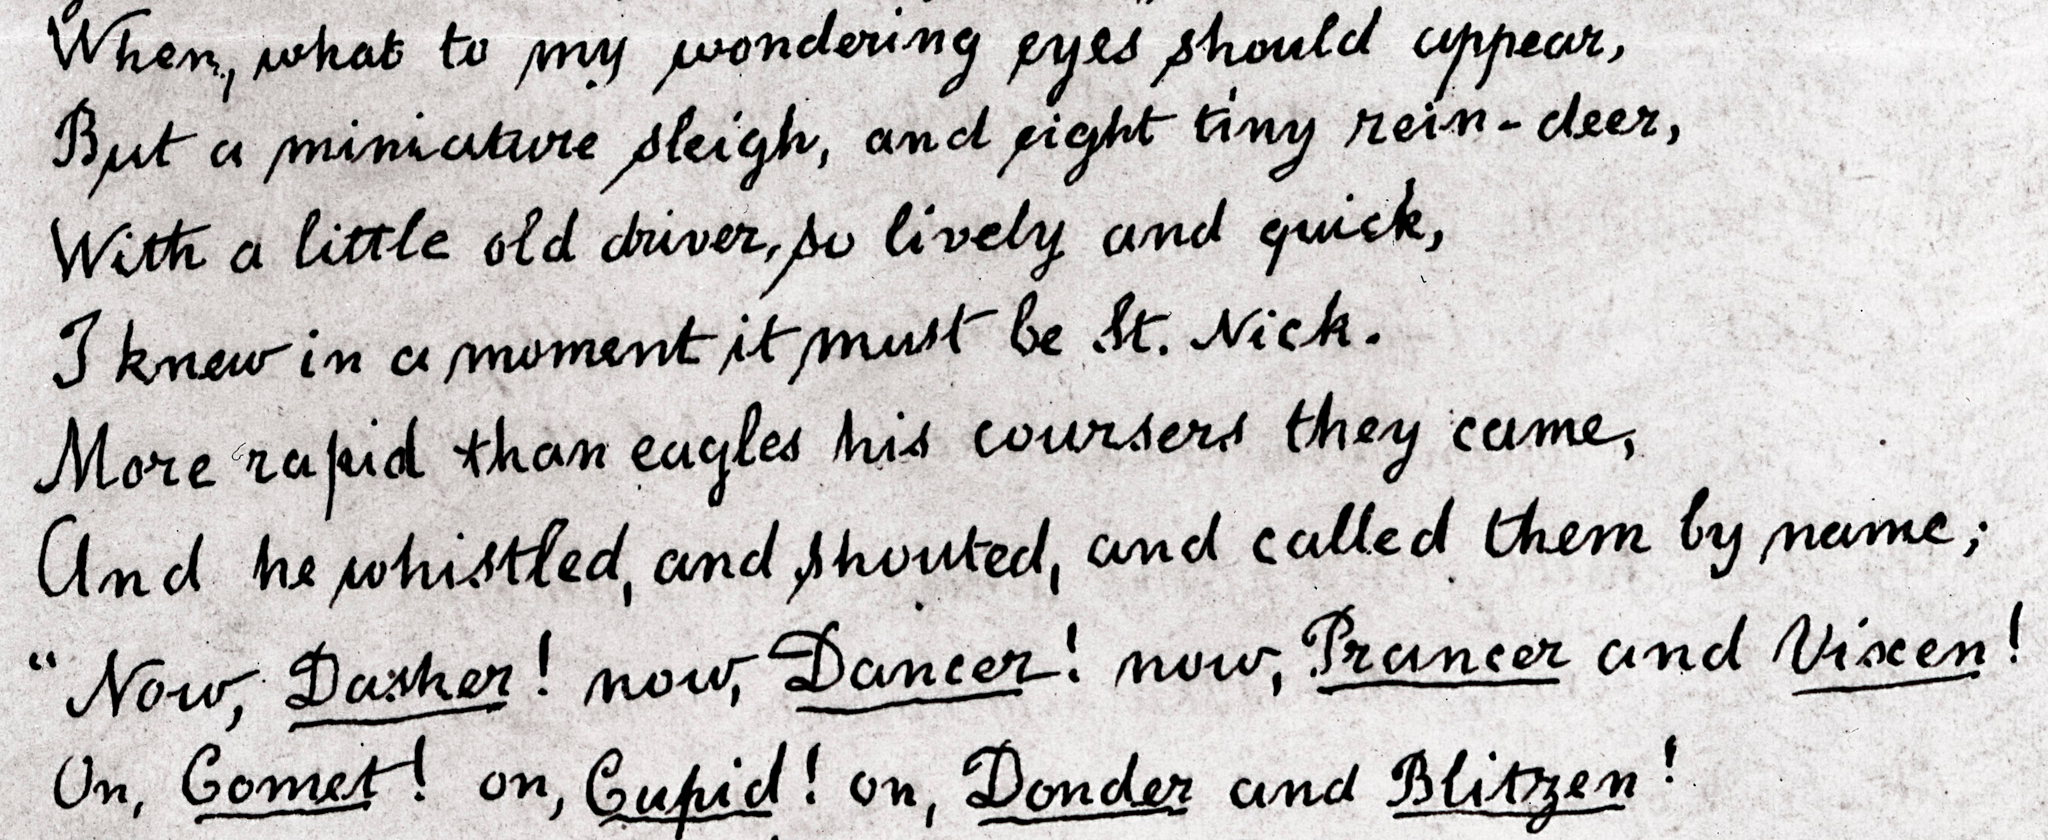 When, what to my wondering eyes should appear,
But a miniature sleigh, and eight tiny rein-deer,
With a little old driver, so lively and quick,
I knew in a moment it must be St. Nick.
More rapid than eagles his coursers they came,
And he whistled, and shouted, and called them by name;
“Now, Dasher! now, Dancer! now, Prancer and Vixen!
On, Comet! on, Cupid! on, Donder and Blitzen!